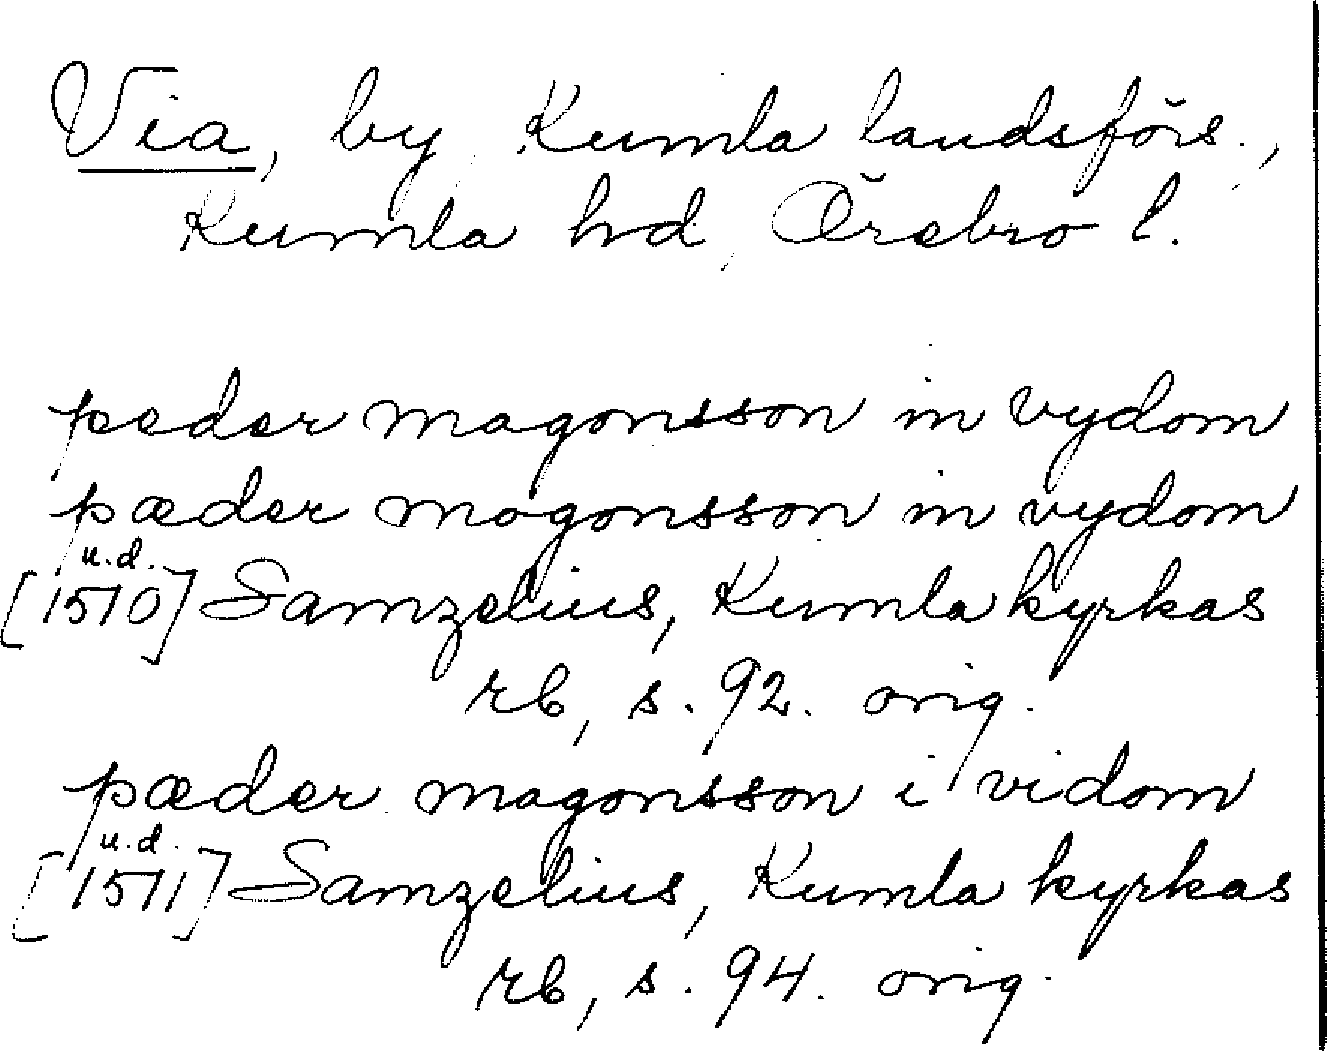 Via, by, Kumla landsförs.,
Kumla hd, Örebro l.
peder magonsson in vydom
pæder mogonsson in vydom
u.d.
[1510] Samzelius, Kumla kyrkas
rb, s. 92. orig.
pæder magonsson i vidom
u.d.
[1511] Samzelius, Kumla kyrkas
rb, s. 94. orig.